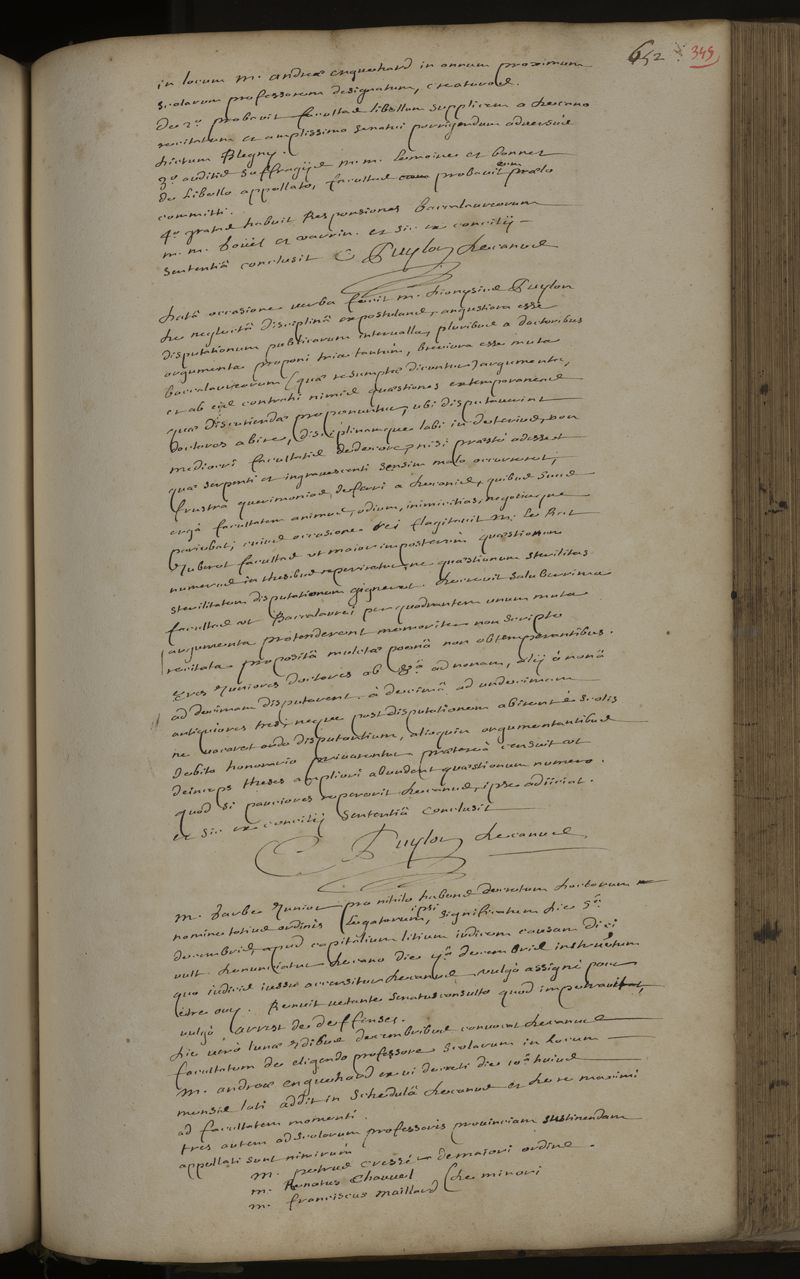 652 349
in locum M. Andreæ Enguehard in annum proximum
scolarum professorem designatum, creaturos.
De 2º. probavit facultas libellum supplicem a decano
recitatum et amplissimo senatui porrigendum adversus
dictum Blegny.
3º. auditis suffragijs M. M. Lemoine et Bonnet
de libello appellato, facultas probavit eum prælo
committi.
4º gratas habuit Responsiones baccalaureorum
M. M. et et sic ex concilij
sententiâ conclusit Puylon decanus
Datâ occasione verba fecit M. Dionysius Puylon
de neglectâ disciplinâ expostulans, angustiora esse
disputationum publicarum intervalla, pluribus a doctoribus
argumenta proponi tria tantum, breviora esse muta
baccalaureorum (quæ resumptæ dicuntur) argumenta,
et ab eis contrahi nimis quæstiones extemporaneas
quæ discutiendæ proponuntur, ubi disputaverint
doctores abire, disciplinamque labi in deterius, non
mediocri facultatis dedecore, nisi præsto adesset
quæ serpenti et ingravescenti sensim malo occurreret,
frustra querimonias deferri a decanis, quibus suus
ergà facultatem animus, odium, inimicitias, negotiaque
pariebat; cuius occasione rei flagitavit M. Le Rat
iuberet facultas ut maior imposterum quæstionum
numerus in thesibus reperiretur, ne quæstionum sterilitas
sterilitatem disputationum gigneret. decrevit saluberrima
facultas ut Baccalaurei per quadrantem unum muta
argumenta protenderent memoriter non scripto
recitata propositâ mulctæ poenâ non obtemperantibus.
tres iuniores doctores ab 8ª. ad nonam, alij à nonâ
ad decimam disputarent. à decimâ ad undecimam
antiquiores tres, neque post disputationem abirent è scolis
ne vacaret ordo disputantium, alioquin argumentantibus
debito honorario privarentur præterea censuit ut
deinceps theses ampliori abundent quæstionum numero.
quod si pauciores repererit decanus, ipse adijciat.
et sic ex concilij sententiâ conclusit
Puylon decanus
M. iunior pro nihilo habens decretum doctorum
nomine totius ordinis Legatorum, ipsi significatum die 5ª.
decembris, apud capitalium litium iudicem causam dici
vult. denunciatur decano die 9ª decembris instructum
quo iudicis iussu accersitur decanus, vulgò assigné pour
estre ouy. Renuit vetante senatusconsulto quod impetravit
vulgò Arrest de deffenses.
die verò lunæ idibus decembribus convocat decanus
facultatem de eligendo professore scolarum in locum
M. Andreæ Enguehard ex vi decreti die 10ª huius
mensis lati addit in schedulâ decanus et de re maximi
ad facultatem momenti.
tres autem ad scolarum professoris provinciam sustinendam
appellati sunt nimirùm
M. Petrus Cressé de maiori ordine.
M. Renatus Chauvel
M. Franciscus Maillard (de minori